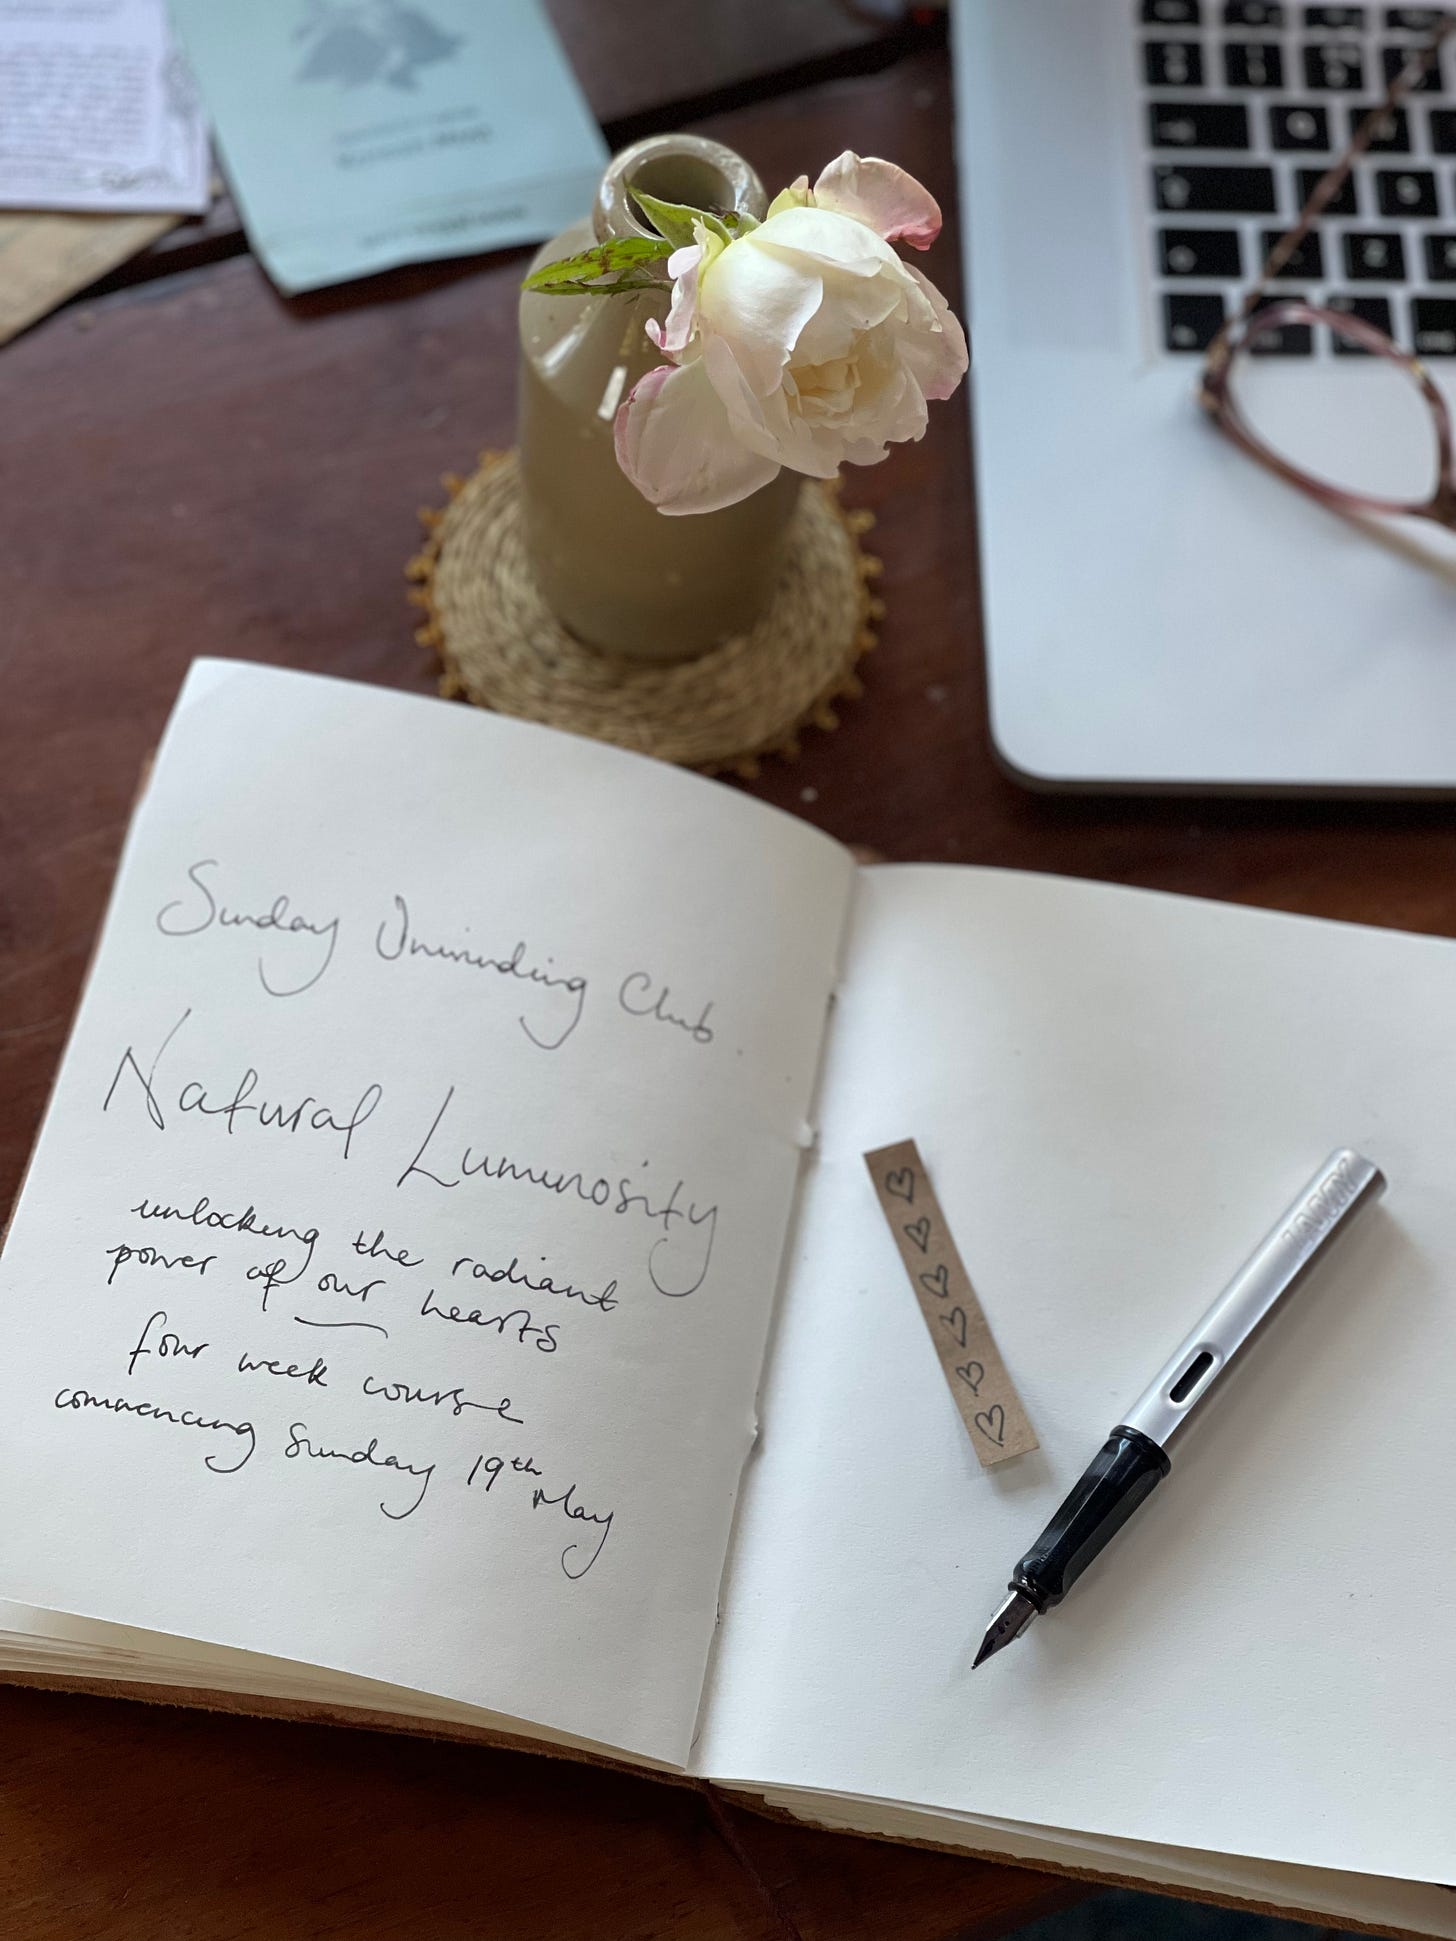 Sunday Unwinding Club.
Natural Luminosity
unlocking the radiant
power of our hearts
four week course
commencing Sunday 19th May
LAMY